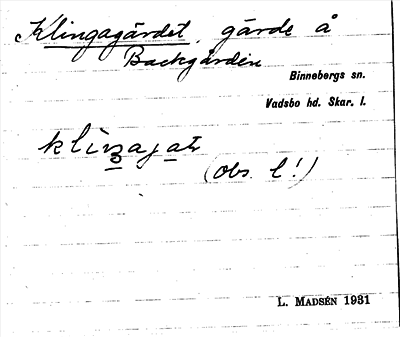 Klingagärdet, gärde å
Backgården
Binnebergs sn.
Vadsbo hd. Skar. l.
(obs. l!)
L. MADSÉN 1931